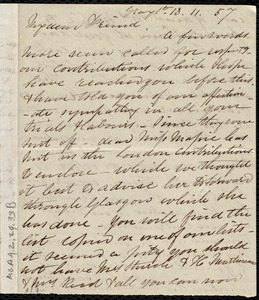 13. 11. 57
My dear Friend
A few words
more seem called for resp-g
our contributions which I hope
have reached you before this
& have told you of our affection-
-ate sympathy in all your
trials & labours - Since they
put off - dear Miss
has
sent us the London contributions
to enclose - which we thought
it best to advise her to forward
through Glasgow which she
has done - You will find the
list copied on one of our lists -
it seemed a pity you should
not have Mrs & H. Martineau
& Mrs Reid & all you can now
MS.A.9.2.29.39B